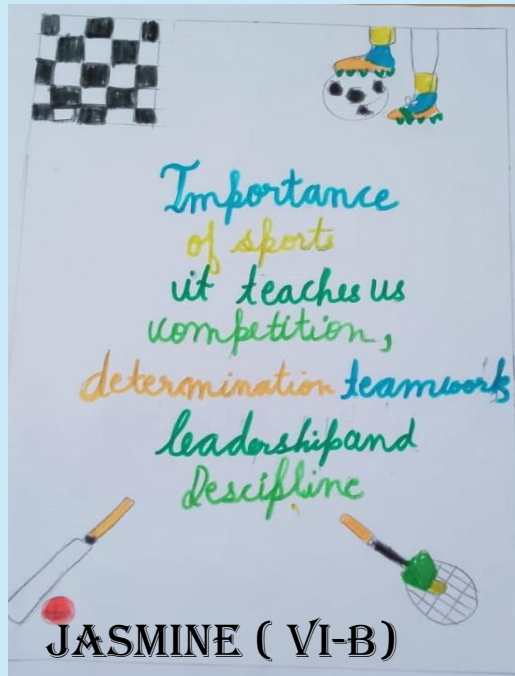 Importance
of sport
it teaches us
competition,
determination teamwork
leadership and
Descipline
JASMINE ( VI-B)